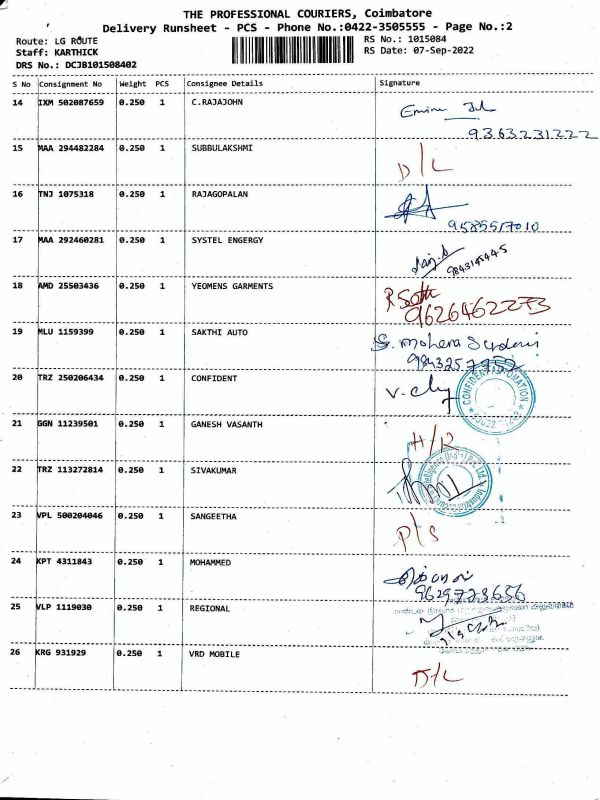 THE PROFESSIONAL COURIERS, Coimbatore
Delivery Runsheet - PCS - Phone No.:0422-3505555 - Page No.:2
Route: LG ROUTE
RS No.: 1015084
Staff: KARTHICK
RS Date: 07-Sep-2022
DRS No.: DCJB101508402
S No Consignment No Weight PCS Consignee Details Signature
14 IXM 502087659 0.250 1 C.RAJAJOHN
9363231222
15 MAA 294482284 0.250 1 SUBBULAKSHMI D/L
16 TNJ 1075318 0.250 1 RAJAGOPALAN
17 MAA 292460281 0.250 1 SYSTEL ENGERGY
18 AMD 25503436 0.250 1 YEOMENS GARMENTS
9626462273
19 MLU 1159399 0.250 1 SAKTHI AUTO
20 TRZ 250206434 0.250 1 CONFIDENT
CONFIDENT AUTOMATION
21 GGN 11239501 0.250 1 GANESH VASANTH
22 TRZ 113272814 0.250 1 SIVAKUMAR
23 VPL 500204046 0.250 1 SANGEETHA P/S
24 KPT 4311843 0.250 1 MOHAMMED
25 VLP 1119030 0.250 1 REGIONAL
26 KRG 931929 0.250 1 VRD MOBILE D/L